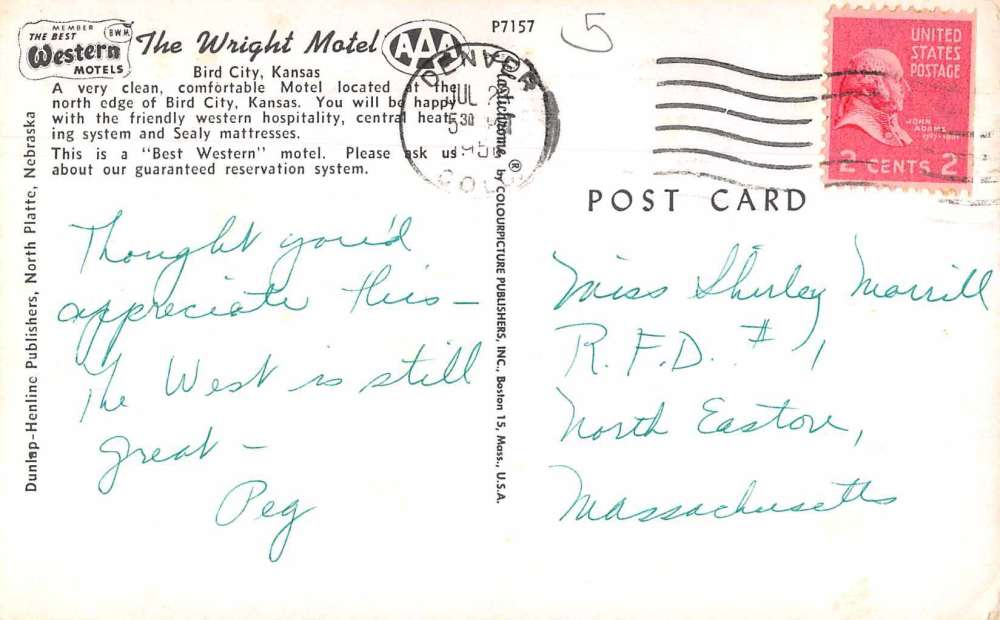 MEMBER
THE BEST B.W.M.
Western
MOTELS
The Wright Motel
AAA
P7157
5
Bird City, Kansas
A very clean, comfortable Motel located at the
north edge of Bird City, Kansas. You will be happy
with the friendly western hospitality, central heat-
ing system and Sealy mattresses.
This is a "Best Western" motel. Please ask us
about our guaranteed reservation system.
Dunlap-Henline Publishers, North Platte, Nebraska
Plastichrome ® by COLOURPICTURE PUBLISHERS, INC., Boston 15, Mass., U.S.A.
DENVER
JUL 2
5 30
COLO
UNITED
STATES
POSTAGE
JOHN
ADAMS
2 CENTS 2
POST CARD
Thought you'd
appreciate this –
The West is still
great –
Peg
Miss Shirley Morrill
R.F.D. # 1,
North Easton,
Massachusetts